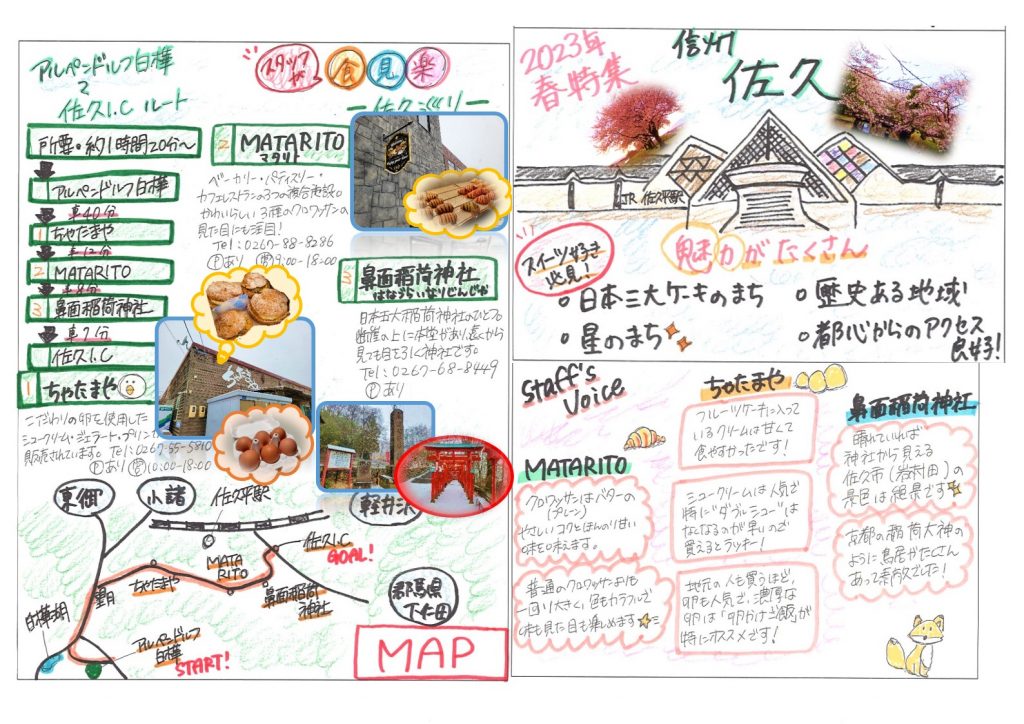 アルペンドルフ白樺
佐久I.C ルート
スタッフが
食見楽
ー佐久巡りー
所要・約1時間20分〜
アルペンドルフ白樺
車40分
1 ちゃたまや
車12分
2 MATARITO
3 鼻面稲荷神社
車7分
佐久I.C
1 ちゃたまや
こだわりの卵を使用した
シュークリーム・ジェラート・プリンて
販売されています。 Tel:0267-55-5810
Ⓟあり 営10:00-18:00
2 MATARITO
マタリト
ベーカリー・パティスリー・
カフェレストランの3つの複合施設。
かわいらしい3種のクロワッサンの
見た目にも注目!
Tel:0267-88-8286
Ⓟあり 営9:00-18:00
3 鼻面稲荷神社
はなづらいなりじんじゃ
日本五大稲荷神社のひとつ。
断崖の上に本堂があり、遠くから
見ても目を引く神社です。
Tel:0267-68-8449
Ⓟあり
東御
小諸
佐久平駅
軽井沢
佐久I.C
GOAL!
MATA
RITO
ちゃたまや
鼻面稲荷
神社
群馬県
下仁田
白樺湖
アルペンドルフ
白樺
START!
MAP
2023年
春特集
信州
佐久
JR 佐久平駅
魅力がたくさん
スイーツ好き
必見!
日本三大ケーキのまち
星のまち
歴史ある地域!
都心からのアクセス
良好!
staff's
Voice
MATARITO
クロワッサンはバターの
(プレーン)
やさしいコクとほんのり甘い
味を味えます。
普通のクロワッサンよりも
一回り大きく、色もカラフルで
味も見た目も楽しめます
ちゃたまや
フルーツケーキに入って
いるクリームは甘くて
食べやすかったです!
シュークリームは人気で
特に"ダブルシュー"は
なくなるのが早いので
買えるとラッキー!
地元の人も買うほど、
卵も人気で、濃厚な
卵は「卵かけご飯」が
特にオススメです!
鼻面稲荷神社
晴れていれば
神社から見える
佐久市(岩村田)の
景色は絶景です
京都の稲荷大神の
ように鳥居がたくさん
あって素敵でした!